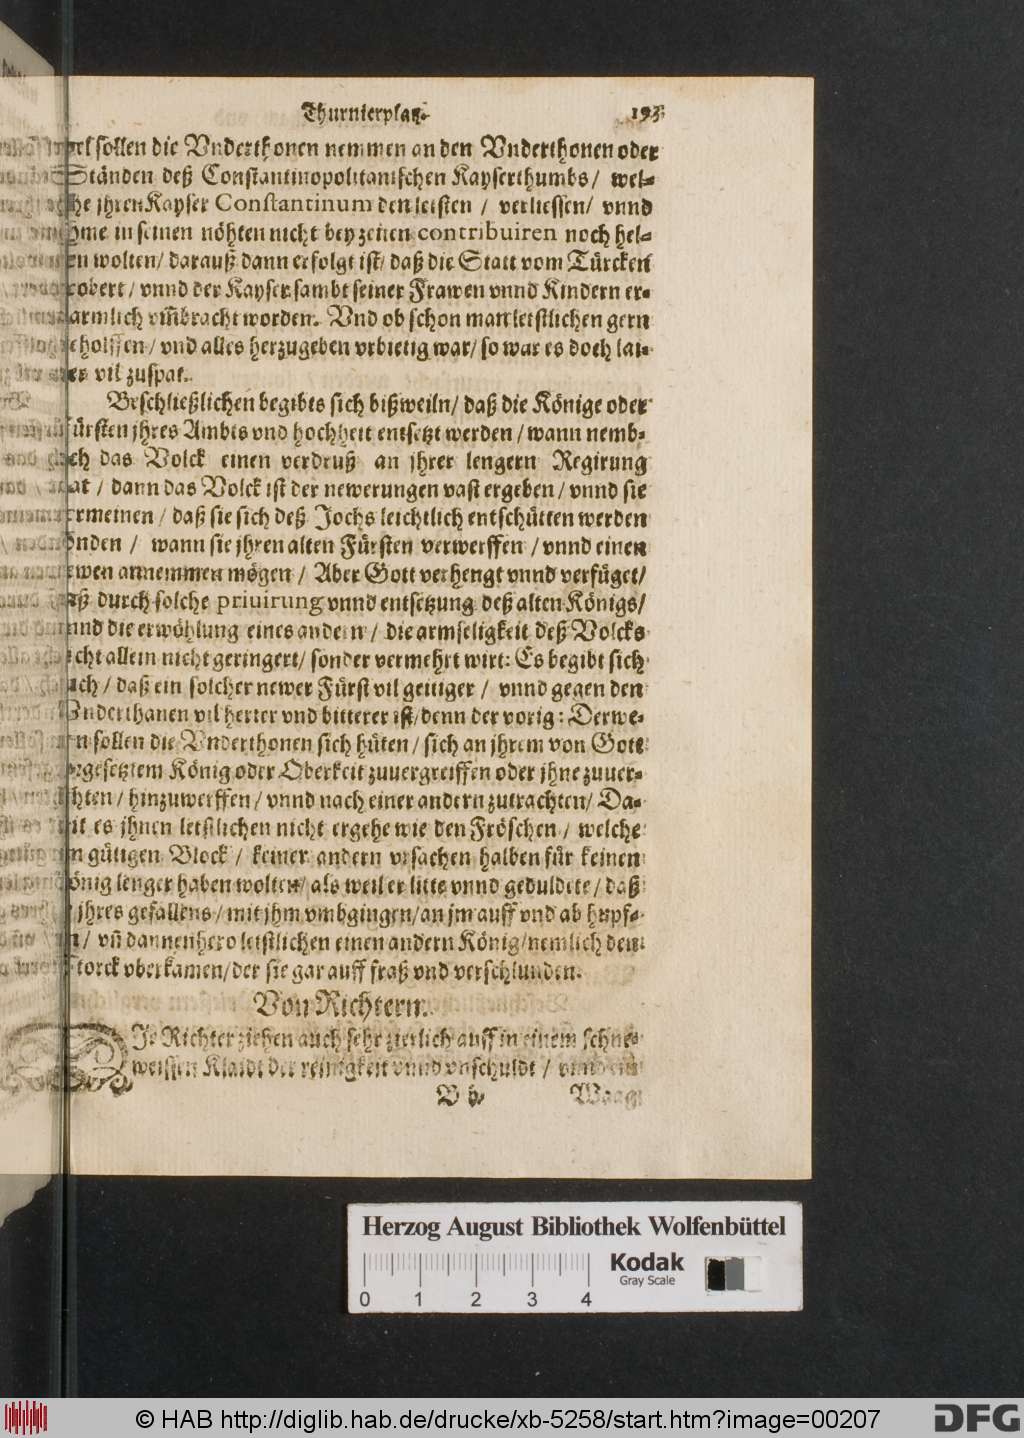 Thurnierplatz. 193
sollen die Vnderthonen nemmen an den Vnderthonen oder
Ständen deß Constantinopolitanischen Kayserthumbs / wel-
che jhren Kayser Constantinum den letsten / verliessen / vnnd
jhme in seinen nöhten nicht beyzeiten contribuiren noch hel-
en wolten / darauß dann erfolgt ist / daß die Statt vom Türcken
robert / vnnd der Kayser sambt seiner Frawen vnnd Kindern er-
ärmlich vm̃bracht worden. Vnd ob schon man letstlichen gern
eholffen / vnd alles herzugeben vrbietig war / so war es doch lai-
er vil zuspat.
Beschließlichen begibts sich bißweiln / daß die Könige oder
ürsten jhres Ambts vnd hochheit entsetzt werden / wann nemb-
ch das Volck einen verdruß an jhrer lengern Regirung
at / dann das Volck ist der newerungen vast ergeben / vnnd sie
ermeinen / daß sie sich deß Jochs leichtlich entschütten werden
önden / wann sie jhren alten Fürsten verwerffen / vnnd einen
ewen annemmen mögen / Aber Gott verhengt vnnd verfüget /
aß durch solche priuirung vnnd entsetzung deß alten Königs /
nnd die erwöhlung eines andern / die armseligkeit deß Volcks
icht allein nicht geringert / sonder vermehrt wirt: Es begibt sich
uch / daß ein solcher newer Fürst vil geitiger / vnnd gegen den
Vnderthanen vil herter vnd bitterer ist / denn der vorig: Derwe-
en sollen die Vnderthonen sich hüten / sich an jhrem von Gott
orgesetztem König oder Oberkeit zuuergreiffen oder jhne zuuer-
chten / hinzuwerffen / vnnd nach einer andern zutrachten / Da-
it es jhnen letstlichen nicht ergehe wie den Fröschen / welche
n gütigen Block / keiner andern vrsachen halben für keinen
önig lenger haben wolten / als weil er litte vnnd geduldete / daß
jhres gefallens / mit jhm vmbgingen / an jm auff vnd ab hupf-
n / vñ dannenhero letstlichen einen andern König / nemlich den
Storck vberkamen / der sie gar auff fraß vnd verschlunden.
Von Richtern.
DJe Richter ziehen auch sehr zierlich auff in einem schne-
weissen Klaidt der reinigkeit vnnd vnschuldt / vnnd ein
B b Waag
Herzog August Bibliothek Wolfenbüttel
0 1 2 3 4
Kodak
Gray Scale
© HAB http://diglib.hab.de/drucke/xb-5258/start.htm?image=00207
DFG